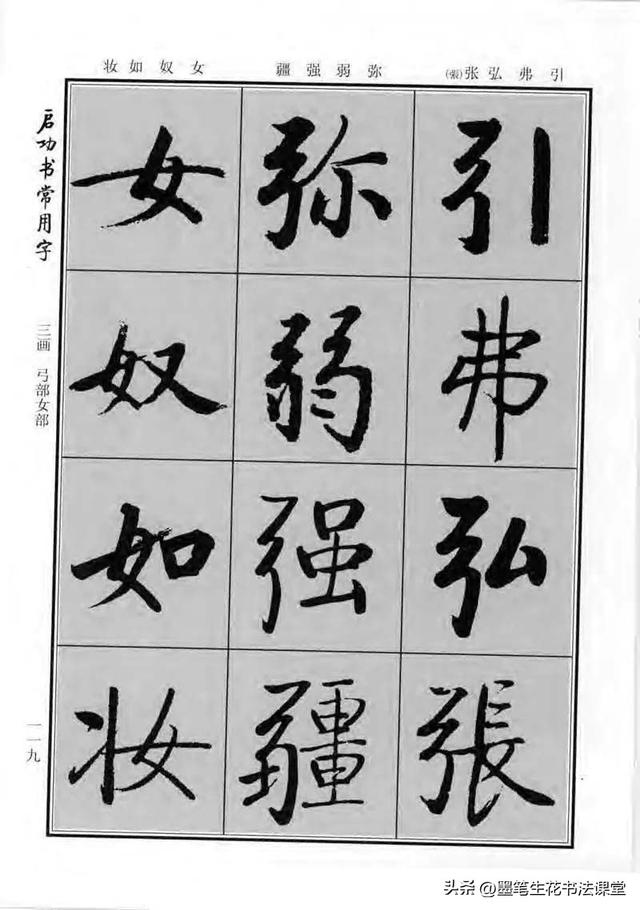 引弗弘张(張)
弥弱强疆
女奴如妆
引
弗
弘
張
弥
弱
强
疆
女
奴
如
妆
启功书常用字
三画 弓部女部
一一九
头条@墨笔生花书法课堂